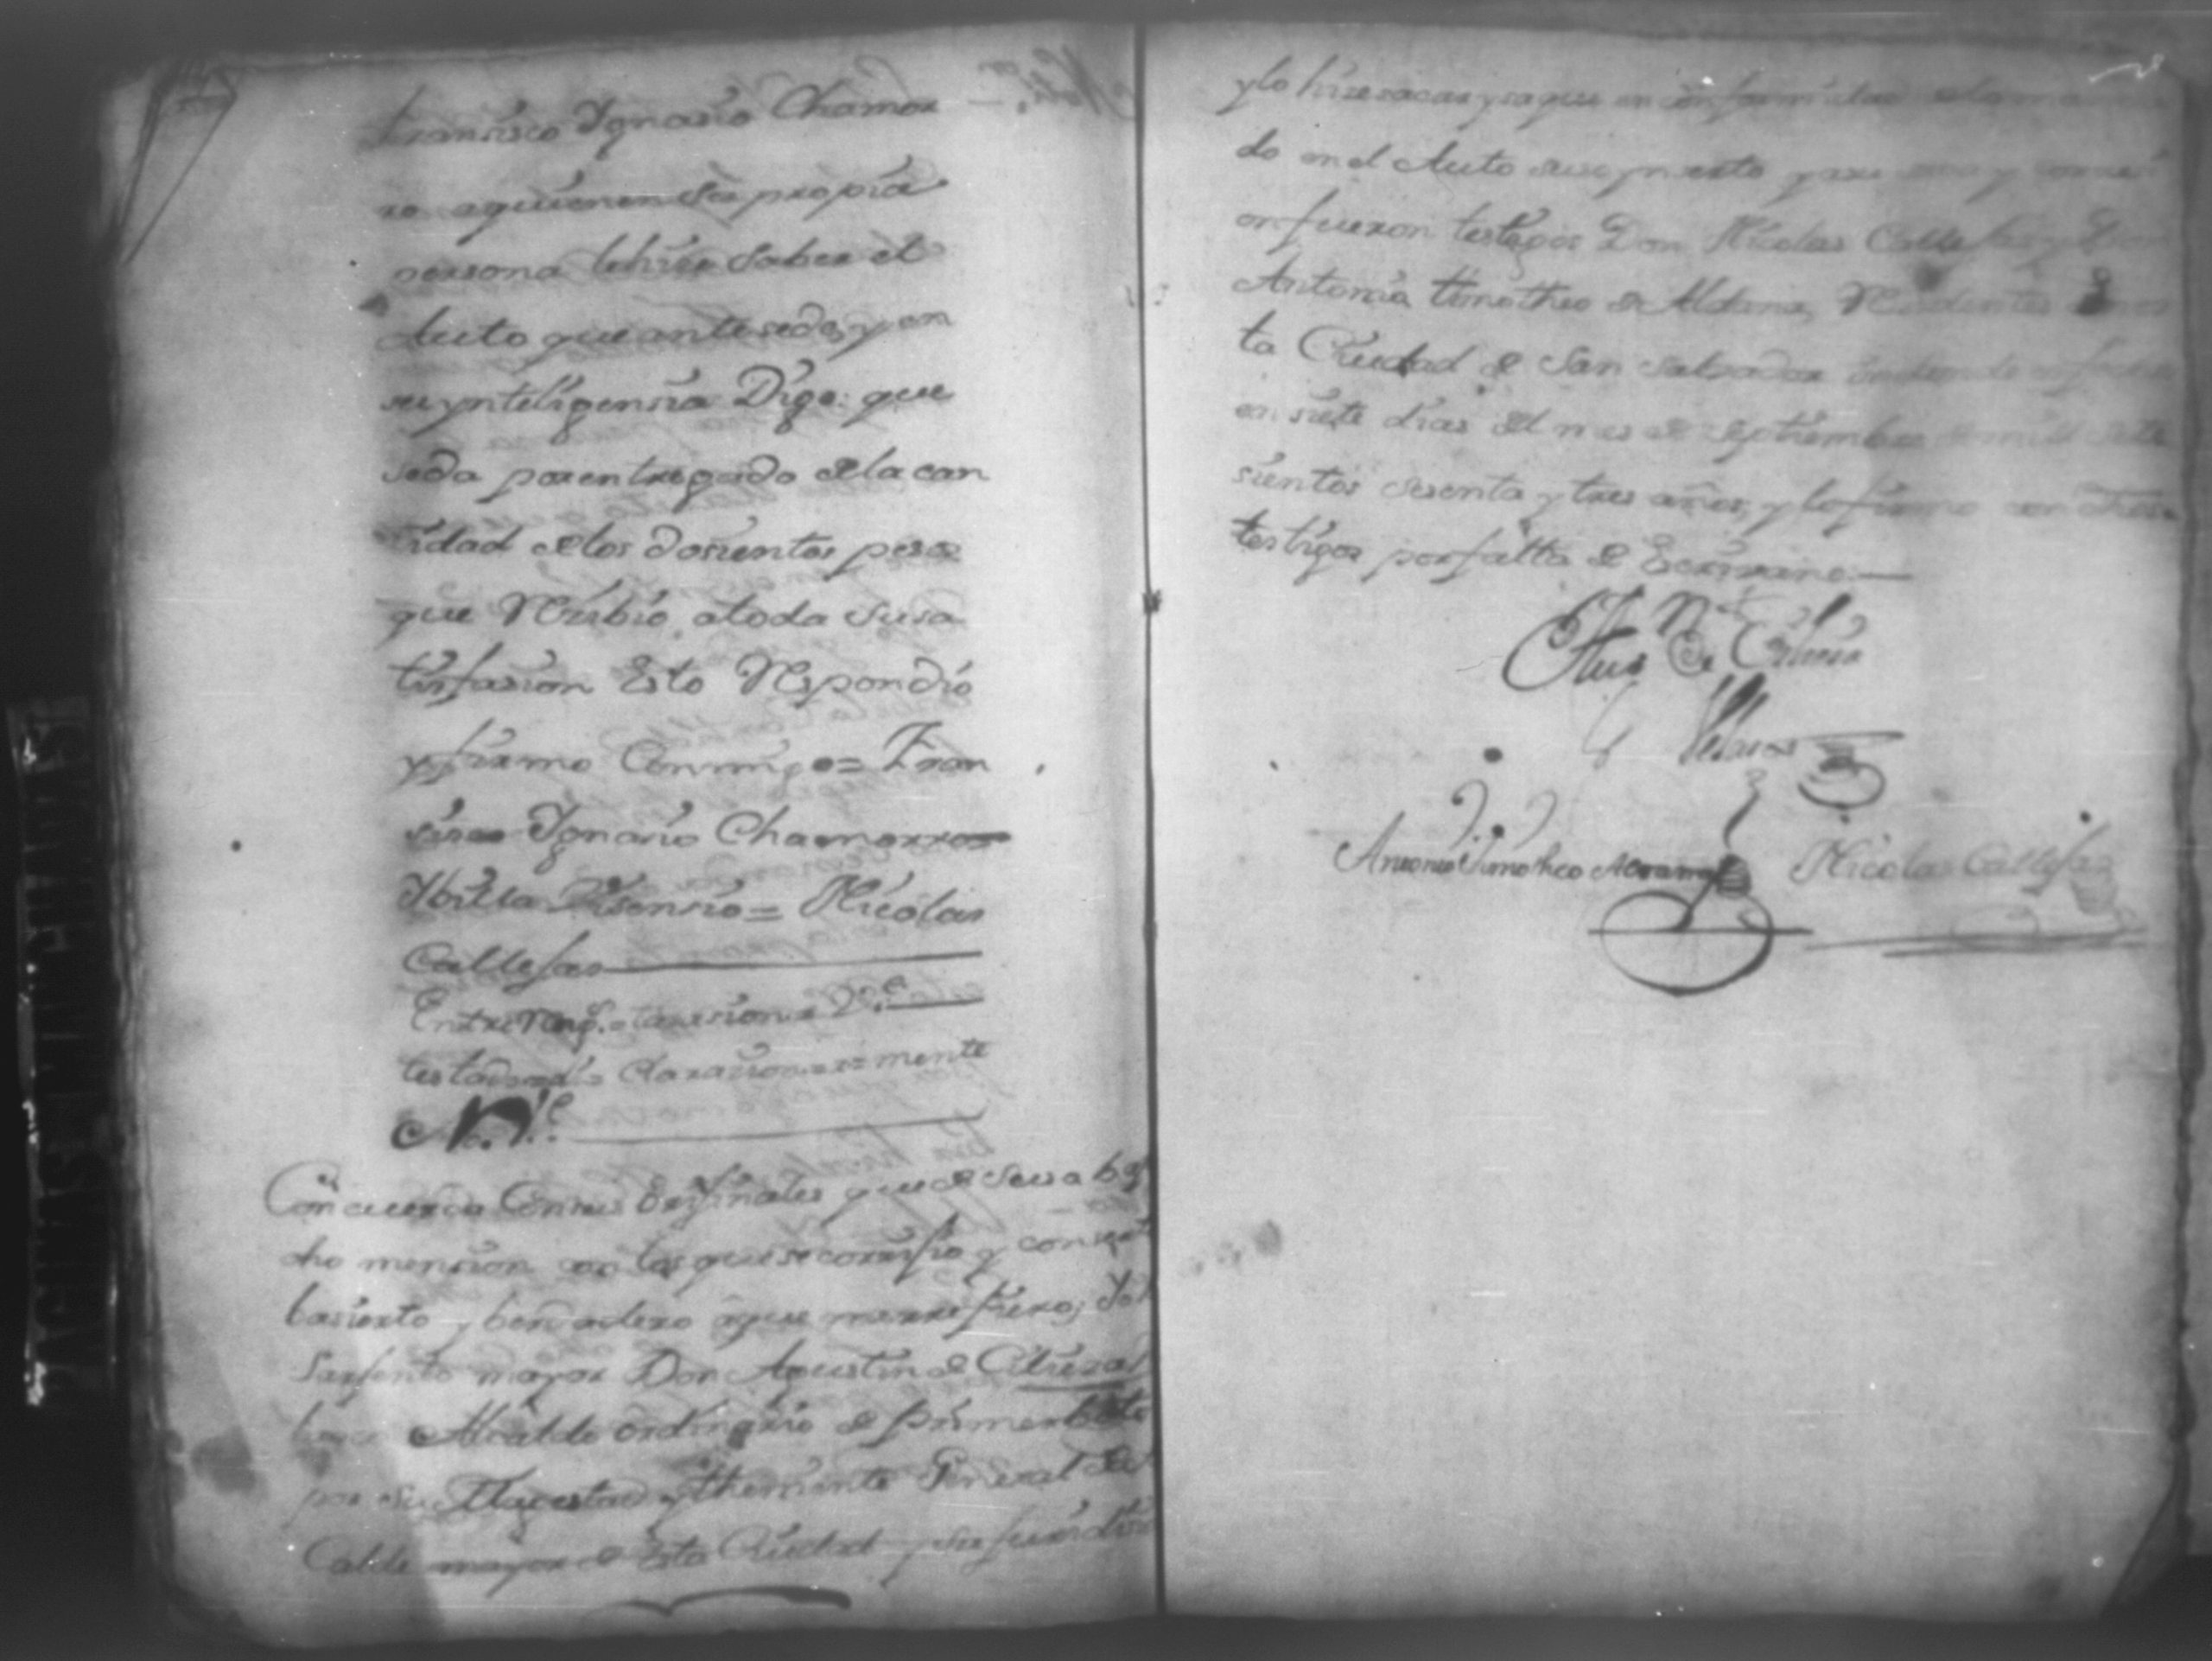 Fransisco Ygnasio Chamor
ro aquienen su propia
persona lehise saber el
Auto que antesede, y en
su ynteligensia Digo: que
seda por entregado dela can
tidad delos dosientos pesos
que Resibio, atoda susa
tisfasion Esto Respondio
y firmo Conmigo = Fran
sisco Ygnasio Chamorro
Villa Visensio = Nicolas
Callejas
Entre Reng.s
testado mente
No. V.e
Concuerda Con sus Originales que de suso ba
cho mension con los que se corrijio y consert
basierto y berdadero aque merrefiero; Yo el
Sarjento mayor Don Agustin de Cilieza
Alcalde ordinario de primer boto
por su Magestad y theniente General del
Calde mayor de Esta Ciudad y su jurisdis
ylo hise sacar y saque en conformidad
do en el Auto suso ynserto
on fueron testigos Don Nicolas Callejas y Don
Antonio timotheo de Aldana, Residentes
ta Ciudad de San Salvador
en siete dias del mes de Septiembre de mill sete
sientos sesenta y tres años, y lo firmo con dhos
testigos por falta de Escrivano
Agus.n de Cilieza
Velasco
Antonio Timotheo Aldana
Nicolas Callejas